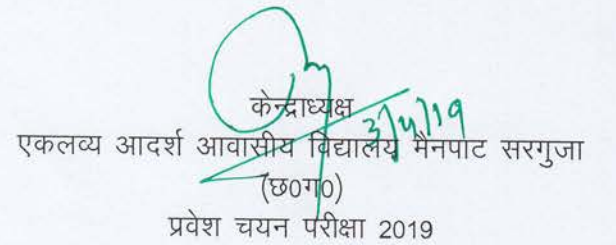 केन्द्राध्यक्ष
3/4/19
एकलव्य आदर्श आवासीय विद्यालय मैनपाट सरगुजा
(छ0ग0)
प्रवेश चयन परीक्षा 2019